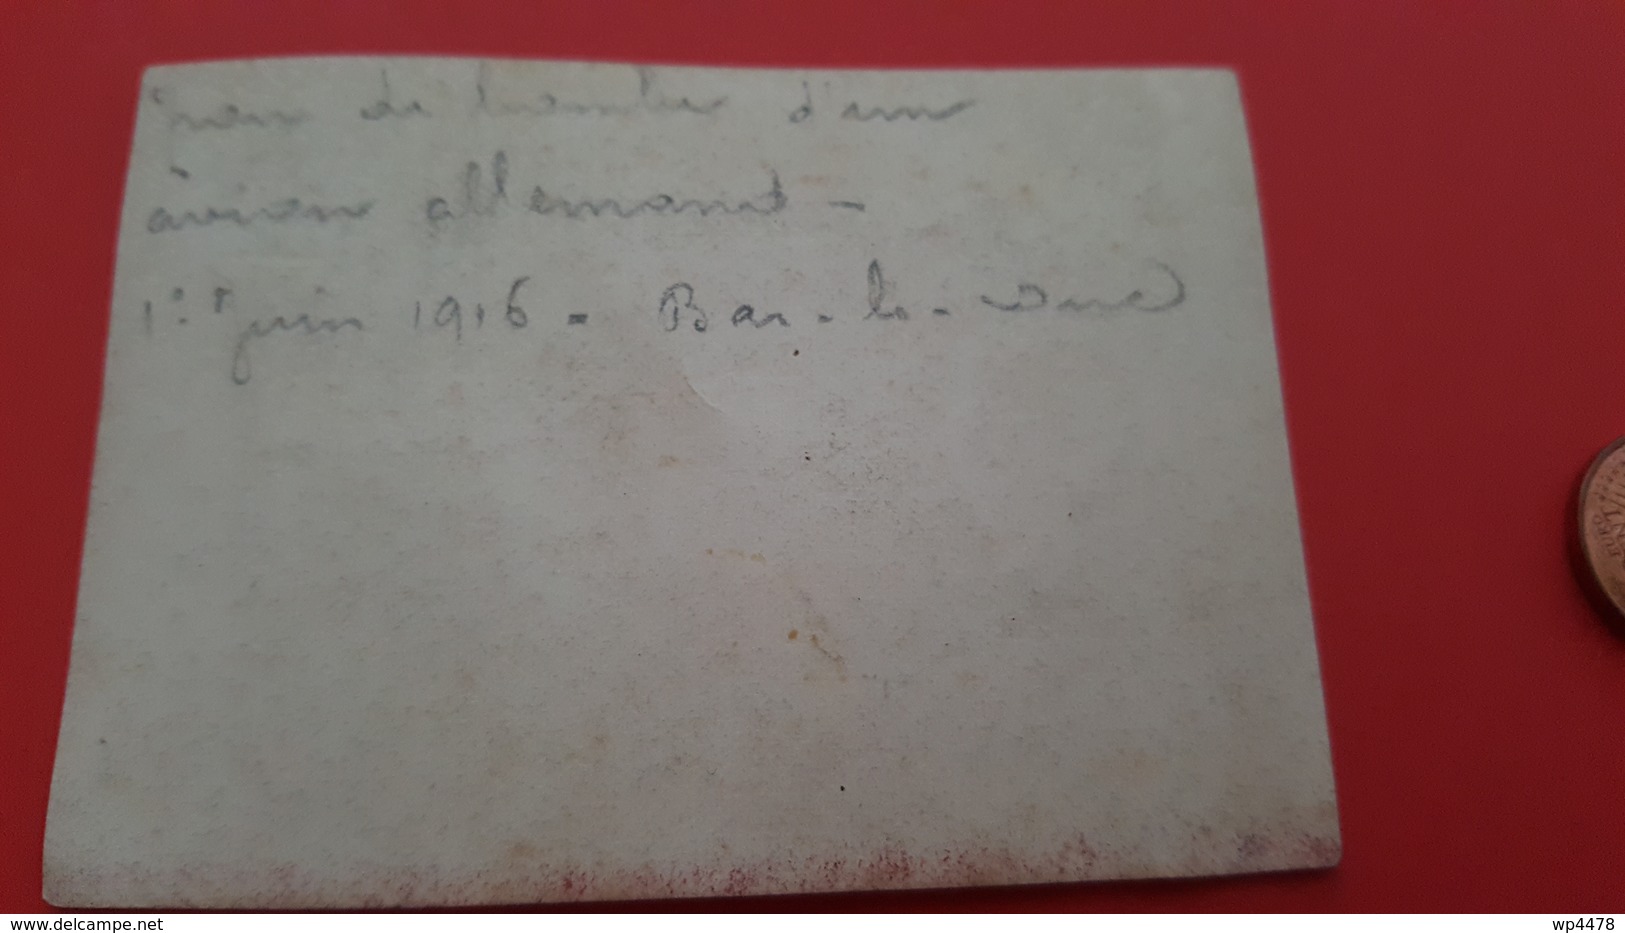 de bombe d'un
avion allemand -
1er juin 1916 - Bar-le-Duc
EURO
www.delcampe.net
wp4478